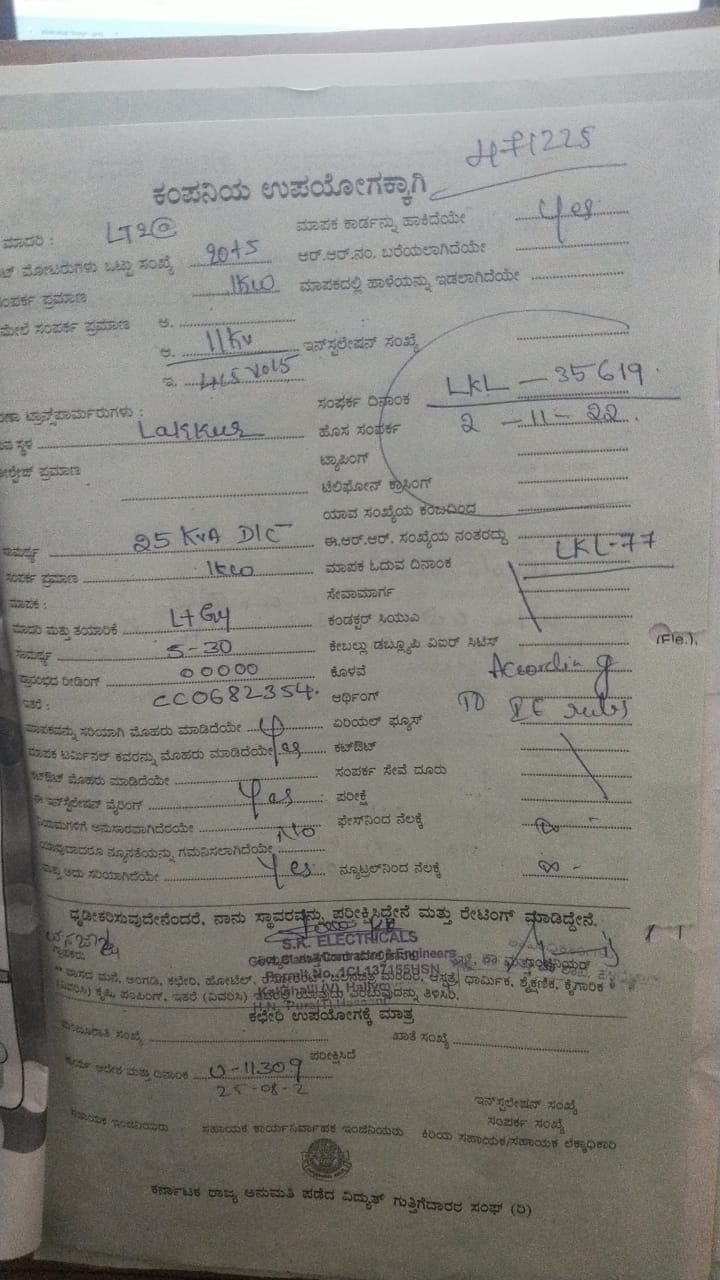 471225
ಕಂಪನಿಯ ಉಪಯೋಗಕ್ಕಾಗಿ
ಮಾದರಿ : LT2@ ಮಾಪಕ ಕಾರ್ಡನ್ನು ಹಾಕಿದೆಯೇ Yes
ಮೋಟರುಗಳು ಒಟ್ಟು ಸಂಖ್ಯೆ 20+5 ಆರ್.ಆರ್.ನಂ. ಬರೆಯಲಾಗಿದೆಯೇ
ಸಂಪರ್ಕ ಪ್ರಮಾಣ 1KW ಮಾಪಕದಲ್ಲಿ ಹಾಳೆಯನ್ನು ಇಡಲಾಗಿದೆಯೇ
ಮೇಲೆ ಸಂಪರ್ಕ ಪ್ರಮಾಣ ಅ.
ಆ. 11KV ಇನ್‌ಸ್ಟಲೇಷನ್ ಸಂಖ್ಯೆ
ಇ. 415 Vol5
LKL - 35619.
ಟ್ರಾನ್ಸ್‌ಫಾರ್ಮರುಗಳು : ಸಂಪರ್ಕ ದಿನಾಂಕ 2 - 11 - 22.
ಸ್ಥಳ Lakkur ಹೊಸ ಸಂಪರ್ಕ
ಪ್ರಮಾಣ ಟ್ಯಾಪಿಂಗ್
ಟೆಲಿಫೋನ್ ಕ್ರಾಸಿಂಗ್
ಯಾವ ಸಂಖ್ಯೆಯ ಕಂಬದಿಂದ
ಸಾಮರ್ಥ್ಯ 25 KVA DTC ಈ.ಆರ್.ಆರ್. ಸಂಖ್ಯೆಯ ನಂತರದ್ದು LKL-77
ಸಂಪರ್ಕ ಪ್ರಮಾಣ 1KW ಮಾಪಕ ಓದುವ ದಿನಾಂಕ
ಮಾಪಕ : ಸೇವಾಮಾರ್ಗ
ಮಾದರಿ ಮತ್ತು ತಯಾರಿಕೆ L+Gy ಕಂಡಕ್ಟರ್ ಸಿಯುಎ
ಸಾಮರ್ಥ್ಯ 5-30 ಕೇಬಲ್ಲು ಡಬ್ಲ್ಯೂಪಿ ವಿಐರ್ ಸಿಟಿಸ್
ಪ್ರಾರಂಭದ ರೀಡಿಂಗ್ 00000 ಕೊಳವೆ According
ಇತರೆ : CC0682354. ಆರ್ಥಿಂಗ್ TO IE rules
ಮಾಪಕವನ್ನು ಸರಿಯಾಗಿ ಮೊಹರು ಮಾಡಿದೆಯೇ ಏರಿಯಲ್ ಫ್ಯೂಸ್
ಮಾಪಕ ಟರ್ಮಿನಲ್ ಕವರನ್ನು ಮೊಹರು ಮಾಡಿದೆಯೇ Yes ಕಟ್‌ಔಟ್
ಕಟ್‌ಔಟ್ ಮೊಹರು ಮಾಡಿದೆಯೇ ಸಂಪರ್ಕ ಸೇವೆ ದೂರು
ಈ ಇನ್‌ಸ್ಟಲೇಷನ್ ವೈರಿಂಗ್ Yes ಪರೀಕ್ಷೆ
ನಿಯಮಗಳಿಗೆ ಅನುಸಾರವಾಗಿದೆಯೇ ಫೇಸ್‌ನಿಂದ ನೆಲಕ್ಕೆ
ಯಾವುದಾದರೂ ನ್ಯೂನತೆಯನ್ನು ಗಮನಿಸಲಾಗಿದೆಯೇ No
ಮತ್ತು ಅದು ಸರಿಯಾಗಿದೆಯೇ Yes ನ್ಯೂಟ್ರಲ್‌ನಿಂದ ನೆಲಕ್ಕೆ
ಧೃಡೀಕರಿಸುವುದೇನೆಂದರೆ, ನಾನು ಸ್ಥಾವರವನ್ನು ಪರೀಕ್ಷಿಸಿದ್ದೇನೆ ಮತ್ತು ರೇಟಿಂಗ್ ಮಾಡಿದ್ದೇನೆ.
S.K. ELECTRICALS
ಗ್ರಾಹಕರು
** ವಾಸದ ಮನೆ, ಅಂಗಡಿ, ಕಛೇರಿ, ಹೋಟೆಲ್, ಆಸ್ಪತ್ರೆ, ಧಾರ್ಮಿಕ, ಶೈಕ್ಷಣಿಕ, ಕೈಗಾರಿಕ
(ವಿವರಿಸಿ) ಕೃಷಿ, ಪಂಪಿಂಗ್, ಇತರೆ (ವಿವರಿಸಿ) ತಿಳಿಸಿರಿ.
ಕಛೇರಿ ಉಪಯೋಗಕ್ಕೆ ಮಾತ್ರ
ಮಂಜೂರಾತಿ ಸಂಖ್ಯೆ ಖಾತೆ ಸಂಖ್ಯೆ
ಪರೀಕ್ಷಿಸಿದೆ
ಕಾರ್ಯ ಆದೇಶ ಮತ್ತು ದಿನಾಂಕ 0-11309
25-08-2
ಇನ್‌ಸ್ಟಲೇಷನ್ ಸಂಖ್ಯೆ
ಸಂಪರ್ಕ ಸಂಖ್ಯೆ
ಸಹಾಯಕ ಇಂಜಿನಿಯರು ಸಹಾಯಕ ಕಾರ್ಯನಿರ್ವಾಹಕ ಇಂಜಿನಿಯರು ಕಿರಿಯ ಸಹಾಯಕ/ಸಹಾಯಕ ಲೆಕ್ಕಾಧಿಕಾರಿ
ಕರ್ನಾಟಕ ರಾಜ್ಯ ಅನುಮತಿ ಪಡೆದ ವಿದ್ಯುತ್ ಗುತ್ತಿಗೆದಾರರ ಸಂಘ (ರಿ)